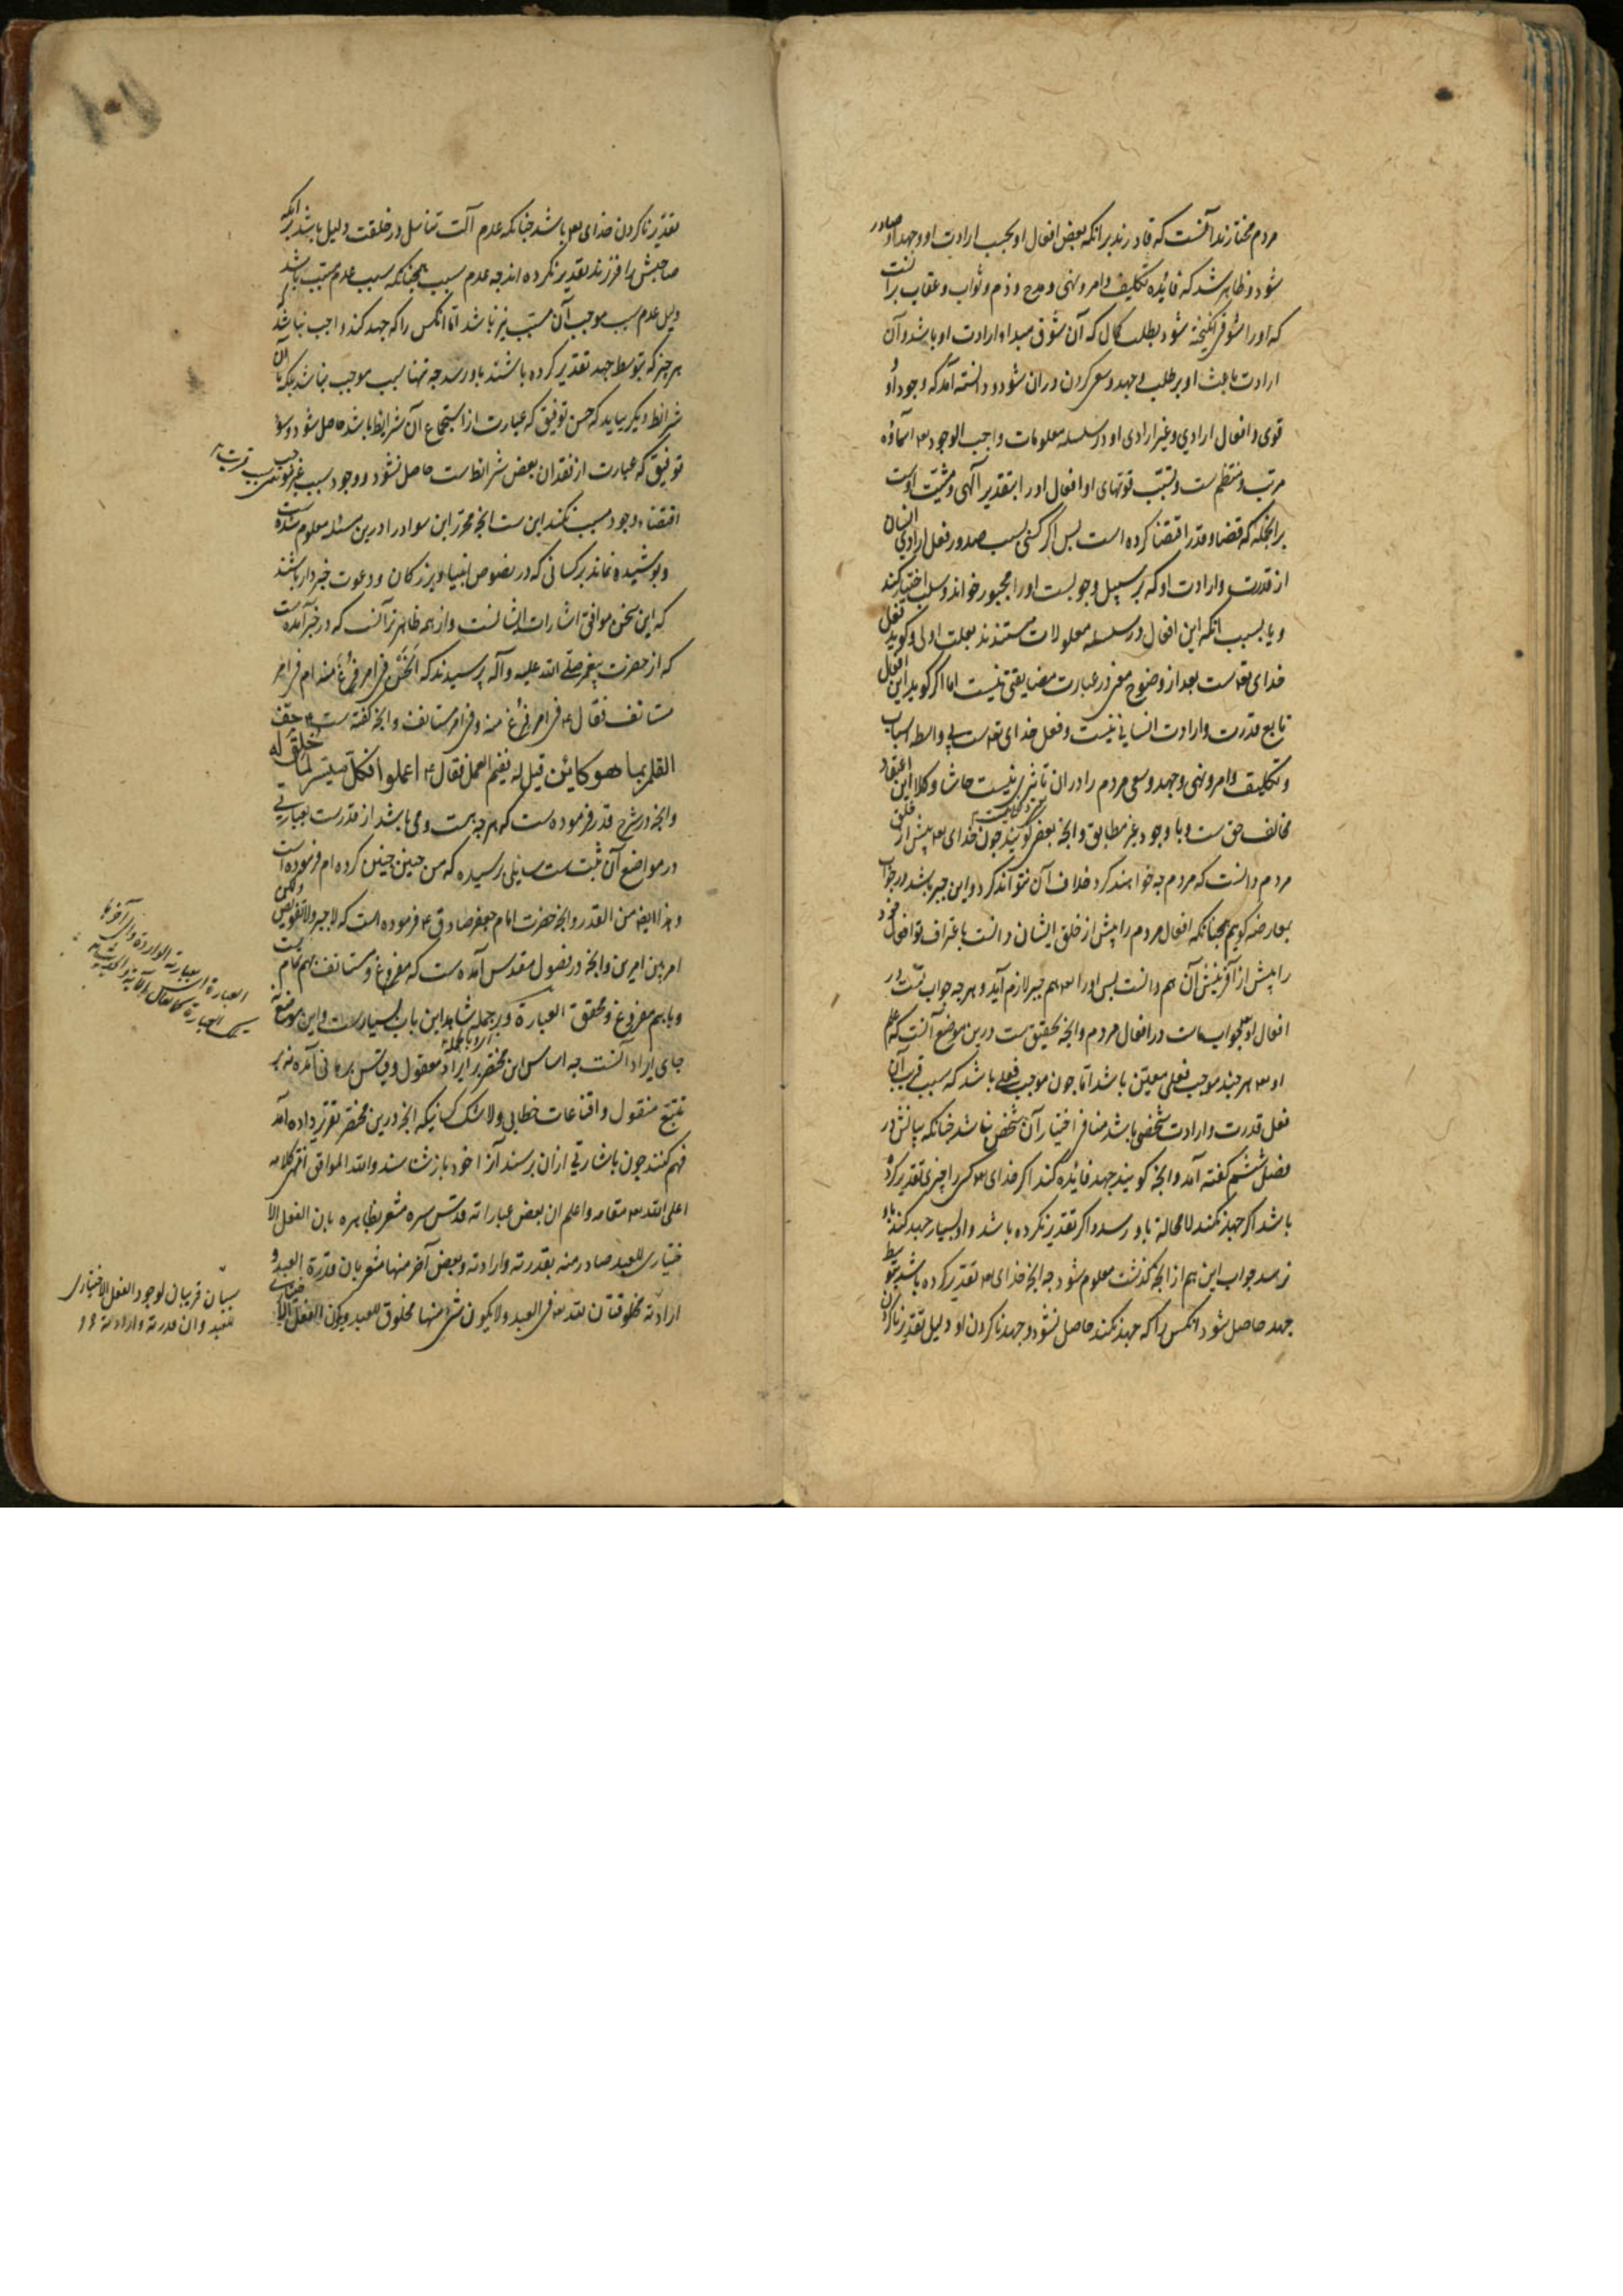 مردم مختارند آنست که قادرند برآنکه بعض افعال او بحسب ارادت او وجهد او صادر
شود و ظاهر شد که فائده تکلیف و امر و نهی و مدح و ذم و ثواب و عقاب برانست
که او را شوقی انگیخته شود بطلب کمال که آن شوق مبدا ارادت او باشد و آن
ارادت باعث او بر طلب و جهد و سعی کردن دران شود و دانسته آمد که وجود او و
قوی و افعال ارادی و غیر ارادی او در سلسله معلومات واجب الوجود تع اسماؤه
مرتب و منتظم ست و تسبب قوتهای او افعال او را بتقدیر آلهی و مشیت اوست
برانجمله که قضا و قدر اقتضا کرده است بس اگر کسی بسبب صدور فعل ارادی انسان
از قدرت و ارادت او که بر سبیل وجوبست او را مجبور خواند و سلب اختیار کند
و یا بسبب آنکه این افعال در سلسله معلولات مستندند بعلت اولی و گوید فعل
خدای تع است بعد از وضوح معنی در عبارت مضایقتی نیست اما اگر گوید این افعال
تابع قدرت و ارادت انسانی نیست و فعل خدای تع است بی واسطه اسباب
و تکلیف و امر و نهی و جهد و سعی مردم را دران تاثیری نیست حاشا و کلا این اعتقاد
مخالف حق ست و با وجود غیر مطابق و انچه بعضی گویند چون خدای تع پیش از خلق
مردم دانست که مردم چه خواهند کرد خلاف آن نتوانند کرد و این جبر باشد در جواب
بمعارضه گوییم همچنانکه افعال مردم را پیش از خلق ایشان دانست باعتراف تو افعال خود
را پیش از آفرینش آن هم دانست بس او را تع هم جبر لازم آید و هرچه جواب تست در
افعال او تع جواب ماست در افعال مردم و انچه تحقیق ست درین موضع آنست که علم
او تع هرچند موجب فعلی معین باشد اما چون موجب فعلی باشد که سبب قریب آن
فعل قدرت و ارادت شخصی باشد منافی اختیار آن شخص نباشد چنانکه بیانش در
فصل ششم گفته آمد و انچه گویند جهد فائده نکند اگر خدای تع کسی را چیزی تقدیر کرده
باشد اگر جهد نکند لا محالة باو رسد و اگر تقدیر نکرده باشد و او بسیار جهد کند باو
نرسد جواب این هم از انچه گذشت معلوم شود چه انچه خدای تع تقدیر کرده باشد بتوسط
جهد حاصل شود آنکس را که جهد نکند حاصل نشود و جهد ناکردن او دلیل تقدیر ناکردن
تقدیر ناکردن خدای تع باشد چنانکه عدم آلت تناسل در خلقت دلیل باشد برآنکه
صاحبش را فرزند تقدیر نکرده اند چه عدم سبب همچنانکه سبب عدم مسبب باشد
دلیل عدم سبب موجب آن مسبب نیز باشد اما آنکس را که جهد کند واجب نباشد که
هرچیز که بتوسط جهد تقدیر کرده باشند باو رسد چه تنها سبب موجب نباشد بلکه با آن
شرائط دیگر بباید که حسن توفیق که عبارت از استجماع آن شرائط باشد حاصل شود و سوء
توفیق که عبارت از فقدان بعض شرائط است حاصل نشود و وجود سبب غیر موجب
اقتضاء وجود مسبب نکند این ست انچه محرر این سواد را درین مسئله معلوم شده است
و پوشیده نماند بر کسانی که در نصوص انبیا و بزرکان و دعوت خبردار باشند
که این سخن موافق اشارات ایشانست و از همه ظاهرتر آنست که در خبر آمده است
که از حضرت پیغمبر صلی الله علیه و آله پرسیدند که انحن فی امر فرغ منه ام فی امر
مستانف فقال ع فی امر فرغ منه و فی امر مستانف و انچه گفته ست ع جف
القلم بما هو کائن قیل له ففیم العمل فقال ع اعملوا فکل میسر لما خلق له
و انچه در شرح قدر فرموده ست که هرچه هست و می باشد از قدرست بعبارتی
در مواضع آن مثبت ست سایلی پرسیده که من چنین چنین کرده ام فرموده است
و هذا ایضه من القدر و انچه حضرت امام جعفر صادق ع فرموده است که لا جبر و لا تفویض ولکن
امر بین امرین و انچه در فصول مقدس آمده ست که مفروغ و مستانف بهم تمام ست
جای ایراد آنست چه اساس این مختصر بر ایراد معقول و قیاس برهانی آمده نه بر
تتبع منقول و اقناعات خطابی و لا شک کسانیکه انچه درین مختصر تقریر داده آمد
فهم کنند چون باشارتی ازان برسند آنرا خود بازشناسند والله الموافق انتهی کلامه
اعلی الله تع مقامه و اعلم ان بعض عباراته قدس سره مشعر بظاهره بان الفعل الا
ختیاری للعبد صادر منه بقدرته و ارادته و بعض آخر منها مشعر بان قدرة العبد و
ارادته مخلوقتان لله تع فی العبد و لا یکون شئ منها مخلوق للعبد و یکون الفعل
سببان قریبان لوجود الفعل الاختیاری
للعبد و ان قدرته و ارادته